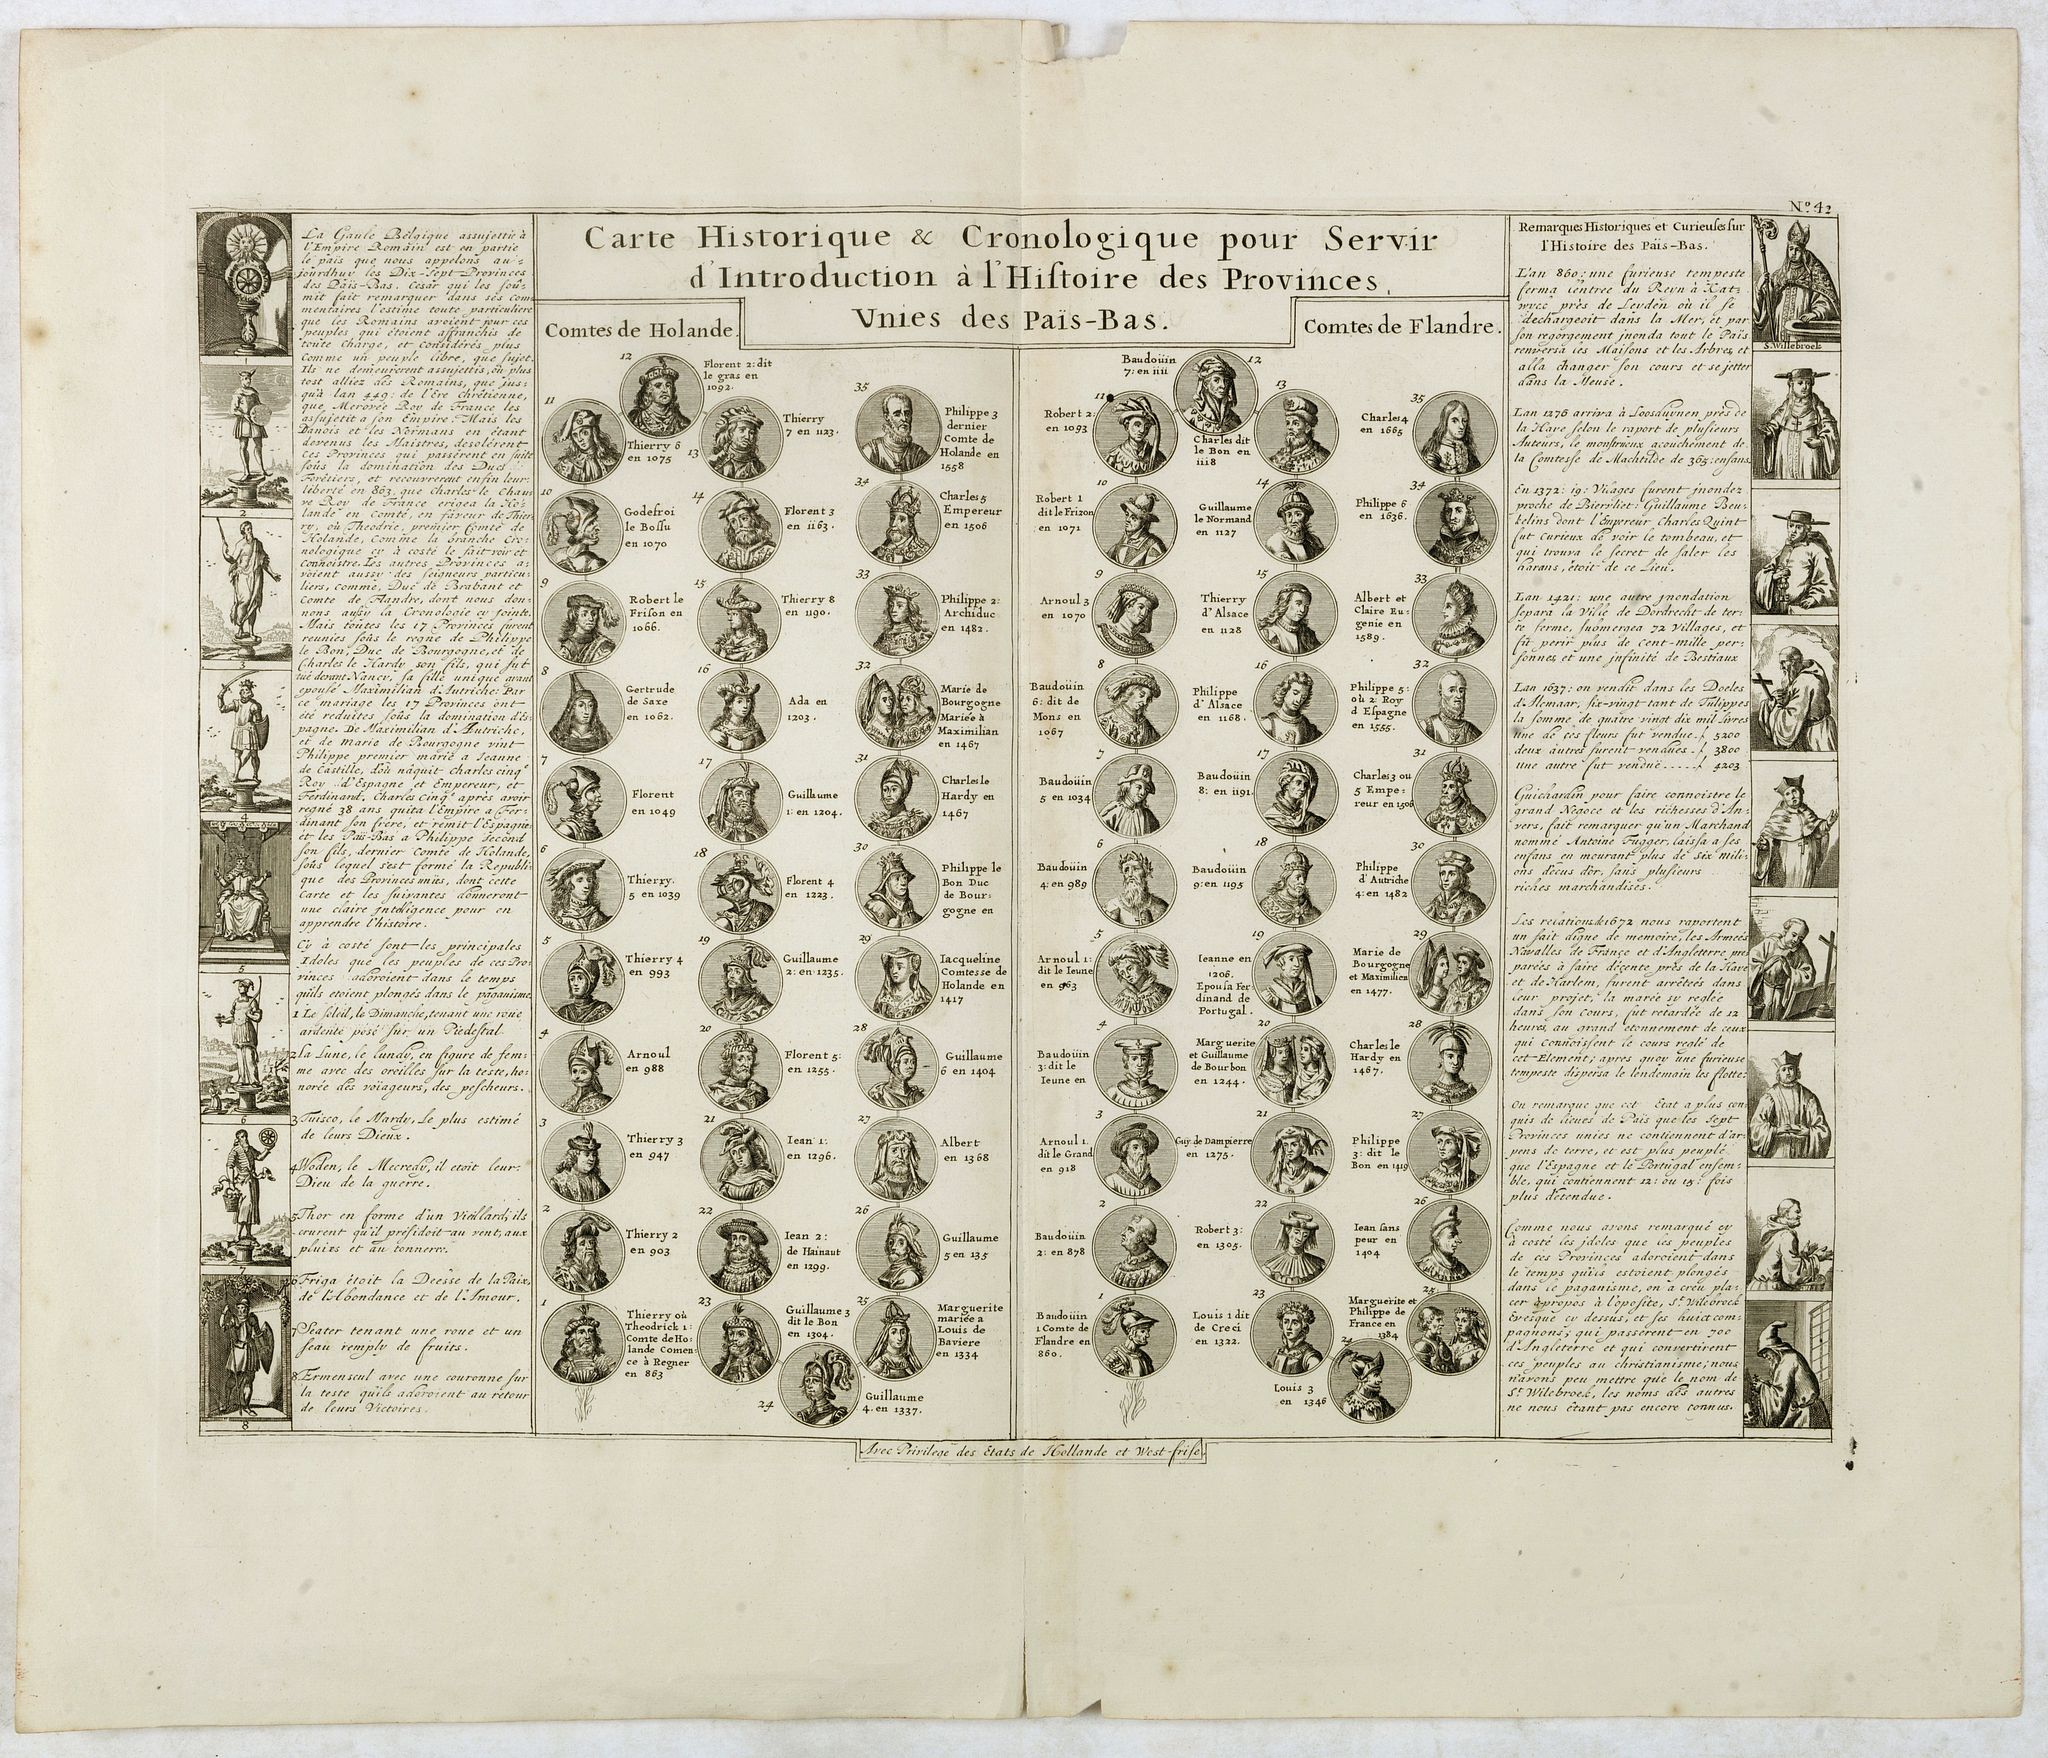 N.º 42
Carte Historique & Cronologique pour Servir
d'Introduction à l'Histoire des Provinces
Vnies des Païs-Bas.
La Gaule Belgique assujettie à
l'Empire Romain est en partie
le païs que nous appelons au-
jourdhuy les Dix-Sept-Provinces
des Païs-Bas. Cesar qui les soû-
mit fait remarquer dans ses com
mentaires l'estime toute particuliere
que les Romains avoient pour ces
peuples qui étoient affranchis de
toute charge, et considérés plus
comme un peuple libre, que sujet.
Ils ne demeurerent assujettis, ou plus
tost alliez des Romains, que jus-
qu'à lan 449: de l'Ere chrétienne,
que Merovée Roy de France les
assujettit a son Empire: Mais les
Danois et les Normans en étant
devenus les Maistres, desolérent
ces Provinces qui passérent en suite
sous la domination des Ducs
Forêtiers, et recouvrerent enfin leur
liberté en 863, que Charles le Chau
ve Roy de France erigea la Ho-
lande en Comté, en faveur de Thier
ry, où Theodric, premier Comté de
Holande, Comme la branche Cro-
nologique cy à costé le fait voir et
connoistre. Les autres Provinces a-
voient aussy des seigneurs particu-
liers, comme, Duc de Brabant et
Comte de Flandre, dont nous don-
nons aussy la Cronologie cy jointe.
Mais toutes les 17 Provinces furent
reunies sous le regne de Philippe
le Bon, Duc de Bourgogne, et de
Charles le Hardy son fils, qui fut
tué devant Nancy, sa fille unique ayant
epousé Maximilian d'Autriche: Par
ce mariage les 17 Provinces ont
été reduites sous la domination d'Es-
pagne. De Maximilian d'Autriche,
et de marie de Bourgogne vint
Philippe premier marié a Jeanne
de Castille, d'où nâquit charles cinq.e
Roy d'Espagne et Empereur, et
Ferdinand, Charles Cinq.e après avoir
regné 38 ans quita l'Empire a Fer-
dinant son frére, et remit l'Espagne
et les Païs-Bas a Philippe second
son fils, dernier Comté de Holande,
sous lequel s'est formé la Republi-
que des Provinces unies, dont cette
Carte et les suivantes donneront
une claire inteligence pour en
apprendre l'histoire.
Cy à costé sont les principales
Idoles que les peuples de ces Pro-
vinces adoroient dans le temps
qu'ils etoient plongés dans le paganisme
1 Le soleil, le Dimanche, tenant une roüe
ardente posé sur un Piédestal
2 La Lune, le lundy, en figure de fem-
me avec des oreilles sur la teste, ho-
norée des voiageurs, des pescheurs.
3 Tuisco, le Mardy, Le plus estimé
de leurs Dieux.
4 Woden, le Mecredy, il etoit leur
Dieu de la guerre.
5 Thor en forme d'un Vieillard; ils
crurent qu'il présidoit au vent, aux
pluies et au tonnerre.
6 Friga étoit la Deésse de la Paix,
de l'Abondance et de l'Amour.
7 Seater tenant une roue et un
seau remply de fruits.
8 Ermenscul avec une couronne sur
la teste qu'ils adoroient au retour
de leurs Victoires.
1
2
3
4
5
6
7
8
Comtes de Holande.
1 Thierry où
Theodrick 1:
Comte de Ho:
lande Comen-
ce à Regner
en 863
2 Thierry 2
en 903
3 Thierry 3
en 947
4 Arnoul
en 988
5 Thierry 4
en 993
6 Thierry.
5 en 1039
7 Florent
en 1049
8 Gertrude
de Saxe
en 1062.
9 Robert le
Frison en
1066.
10 Godefroi
le Bossu
en 1070
11 Thierry 6
en 1075
12 Florent 2: dit
le gras en
1092.
13 Thierry
7 en 1123.
14 Florent 3
en 1163.
15 Thierry 8
en 1190.
16 Ada en
1203.
17 Guillaume
1: en 1204.
18 Florent 4
en 1223.
19 Guillaume
2: en 1235.
20 Florent 5:
en 1255.
21 Iean 1:
en 1296.
22 Iean 2:
de Hainaut
en 1299.
23 Guillaume 3
dit le Bon
en 1304.
24 Guillaume
4. en 1337.
25 Marguerite
mariée a
Louis de
Baviere
en 1334
26 Guillaume
5 en 135
27 Albert
en 1368
28 Guillaume
6 en 1404
29 Iacqueline
Comtesse de
Holande en
1417
30 Philippe le
Bon Duc
de Bour-
gogne en
31 Charles le
Hardy en
1467
32 Marie de
Bourgogne
Mariée à
Maximilian
en 1467
33 Philippe 2:
Archiduc
en 1482.
34 Charles 5
Empereur
en 1506
35 Philippe 3
dernier
Comte de
Holande en
1558
Comtes de Flandre.
1 Baudoüin
1 Comte de
Flandre en
860.
2 Baudoüin
2: en 878
3 Arnoul 1.
dit le Grand
en 918
4 Baudoüin
3: dit le
Ieune en
5 Arnoul 1:
dit le Ieune
en 963
6 Baudoüin
4: en 989
7 Baudoüin
5 en 1034
8 Baudoüin
6: dit de
Mons en
1067
9 Arnoul 3
en 1070
10 Robert 1
dit le Frizon
en 1071
11 Robert 2:
en 1093
12 Baudoüin
7: en 1111
13 Charles dit
le Bon en
1118
14 Guillaume
le Normand
en 1127
15 Thierry
d'Alsace
en 1128
16 Philippe
d'Alsace
en 1168.
17 Baudoüin
8: en 1191.
18 Baudoüin
9: en 1195
19 Ieanne en
1206.
Epousa Fer
dinand de
Portugal.
20 Marguerite
et Guillaume
de Bourbon
en 1244.
21 Guy de Dampierre
en 1275.
22 Robert 3:
en 1305.
23 Louis 1 dit
de Creci
en 1322.
24 Louis 3
en 1346
25 Marguerite et
Philippe de
France en
1384
26 Iean sans
peur en
1404
27 Philippe
3: dit le
Bon en 1419
28 Charles le
Hardy en
1467.
29 Marie de
Bourgogne
et Maximilien
en 1477.
30 Philippe
d'Autriche
4: en 1482
31 Charles 3 ou
5 Empe-
reur en 1506
32 Philippe 5:
où 2 Roy
d'Espagne
en 1555.
33 Albert et
Claire Eu-
genie en
1589.
34 Philippe 6
en 1636.
35 Charles 4
en 1665
Remarques Historiques et Curieuses sur
l'Histoire des Païs-Bas.
L'an 860; une furieuse tempeste
ferma l'entree du Reyn à Kat-
wyck près de Leyden où il se
dechargeoit dans la Mer, et par
son regorgement jnonda tout le Païs
renversa les Maisons et les Arbres, et
alla changer son cours et se jetter
dans la Meuse.
Lan 1276 arriva à Loosduynen près de
la Haye selon le raport de plusieurs
Auteurs, le monstrueux acouchement de
la Comtesse de Machtilde de 365: enfans
En 1372: 19: Vilages furent jnondez
proche de Biervliet: Guillaume Beu-
kelins dont l'Empereur Charles Quint
fut curieux de voir le tombeau, et
qui trouva le secret de saler les
harans, étoit de ce Lieu.
Lan 1421: une autre jnondation
separa la Ville de Dordrecht de ter-
re ferme, submergea 72 Villages, et
fit perir plus de cent-mille per-
sonnes et une jnfinité de Bestiaux
Lan 1637: on vendit dans les Doeles
d'Alcmaar, six-vingt-tant de Tulippes
la somme de quatre vingt dix mil livres
une de ces fleurs fut vendue f 5200
deux autres furent vendues f 3800
une autre fut vendue f 4203
Guichardin pour faire connoistre le
grand Negoce et les richesses d'An-
vers, fait remarquer qu'un Marchand
nommé Antoine Fugger, laissa a ses
enfans en mourant plus de six mili-
ons d'écus d'or, sans plusieurs
riches marchandises.
Les relations de 1672 nous raportent
un fait digne de memoire, les Armées
Navalles de France et d'Angleterre pre
parées à faire décente près de la Haye
et de Harlem, furent arrêtées dans
leur projet, la marée sy reglée
dans son Cours, fut retardée de 12
heures, au grand etonnement de ceux
qui connoissent le cours reglé de
cet Element; apres quoy une furieuse
tempeste dispersa le lendemain les flotte:
On remarque que cet Etat a plus con
quis de liëues de Païs que les Sept
Provinces unies ne contiennent d'ar-
pens de terre, et est plus peuplé
que l'Espagne et le Portugal ensem-
ble, qui contiennent 12: ou 15: fois
plus d'étendue.
Comme nous avons remarqué cy
à costé les jdoles que les peuples
de ces Provinces adoroient dans
le temps qu'ils estoient plongés
dans le paganisme, on a creu pla-
cer apropos à l'oposite, S.t Wilebrock
Evesque cy dessus, et ses huict com-
pagnons; qui passérent en 700
d'Angleterre et qui convertirent
ces peuples au christianisme; nous
n'avons peu mettre que le nom de
S.t Wilebrock, les noms des autres
ne nous étant pas encore connus.
S. Willebroek
Avec Privilege des Etats de Hollande et West-frise.